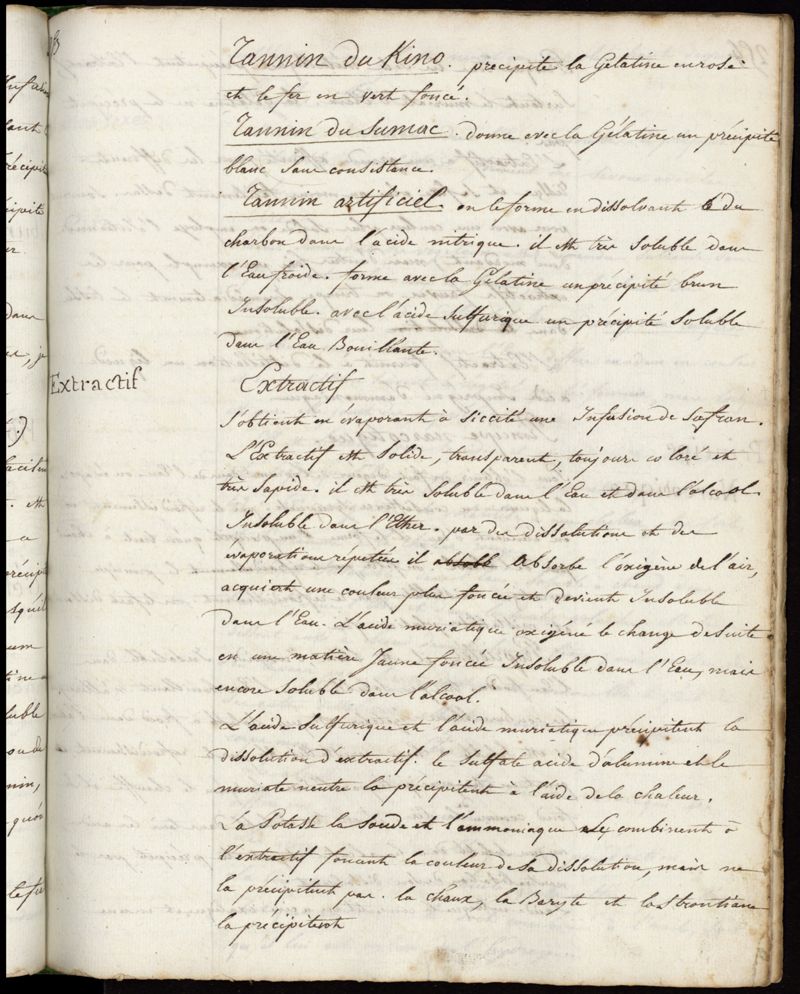 Tannin du Kino. précipite la Gélatine en rose
et le fer en vert foncé.
Tannin du Sumac. donne avec la Gélatine un précipité
blanc sans consistence.
Tannin artificiel. on le forme en dissolvant du
charbon dans l'acide nitrique. il est très soluble dans
l'Eau froide. forme avec la Gélatine un précipité brun
Insoluble. avec l'acide sulfurique un précipité soluble
dans l'Eau Bouillante.
Extractif
Extractif
S'obtient en évaporant à siccité une Infusion de Safran.
L'Extractif est Solide, transparent, toujours coloré et
très sapide. il est très soluble dans l'Eau et dans l'alcool
Insoluble dans l'Ether. par des dissolutions et des
évaporations répétées il absorbe l'oxigène de l'air,
acquiert une couleur plus foncée et devient Insoluble
dans l'Eau. L'acide muriatique oxigéné le change de suite
en une matière Jaune foncée Insoluble dans l'Eau, mais
encore soluble dans l'alcool.
L'acide Sulfurique et l'acide muriatique précipitent la
dissolution d'extractif. le sulfate acide d'alumine et le
muriate neutre la précipitent à l'aide de la chaleur.
La Potasse la Soude et l'ammoniaque se combinent à
l'extractif foncent la couleur de sa dissolution, mais ne
la précipitent pas. la chaux, la Baryte et la strontiane
la précipitent